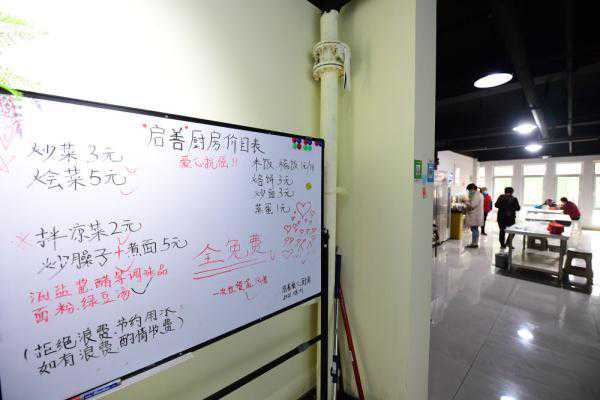 启善厨房价目表
爱心抗癌!!
炒菜 3元
烩菜 5元
拌凉菜 2元
炒臊子+煮面 5元
油盐酱醋等调味品
面粉.绿豆汤
全免费
(拒绝浪费.节约用水
如有浪费酌情收费)
米饭 稀饭 1元/份
烙饼 3元
炒面 3元
蒸蛋 1元